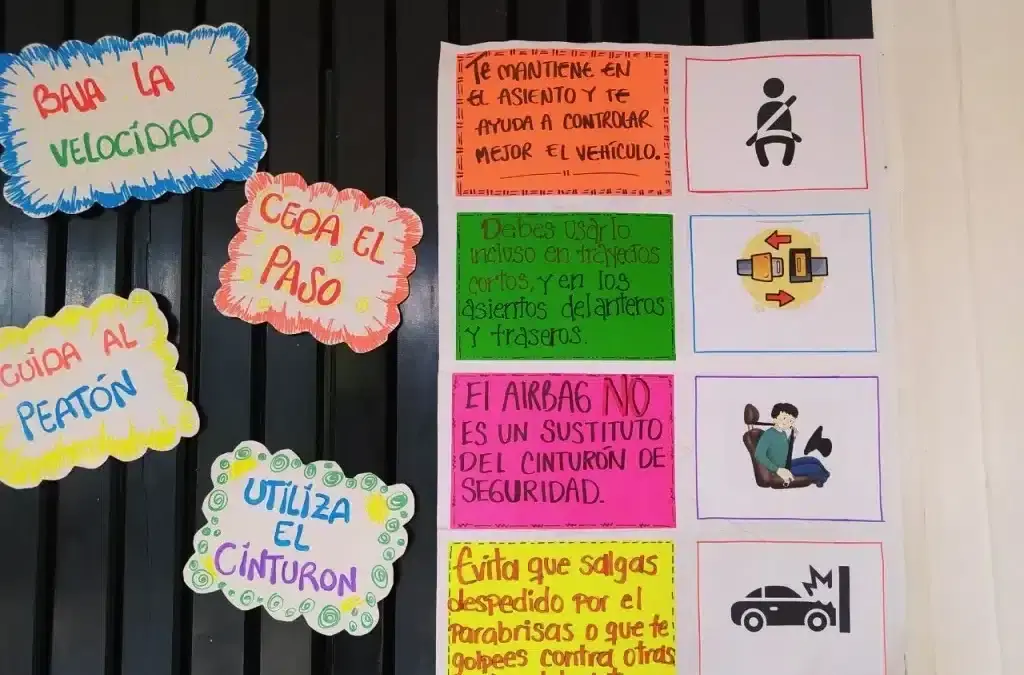 BAJA LA
VELOCIDAD
CEDA EL
PASO
CUIDA AL
PEATÓN
UTILIZA
EL
CINTURON
TE MANTIENE EN
EL ASIENTO Y TE
AYUDA A CONTROLAR
MEJOR EL VEHÍCULO.
Debes usarlo
incluso en trayectos
cortos, y en los
asientos delanteros
y traseros.
El AIRBAG NO
ES UN SUSTITUTO
DEL CINTURÓN DE
SEGURIDAD.
Evita que salgas
despedido por el
parabrisas o que te
golpees contra otras